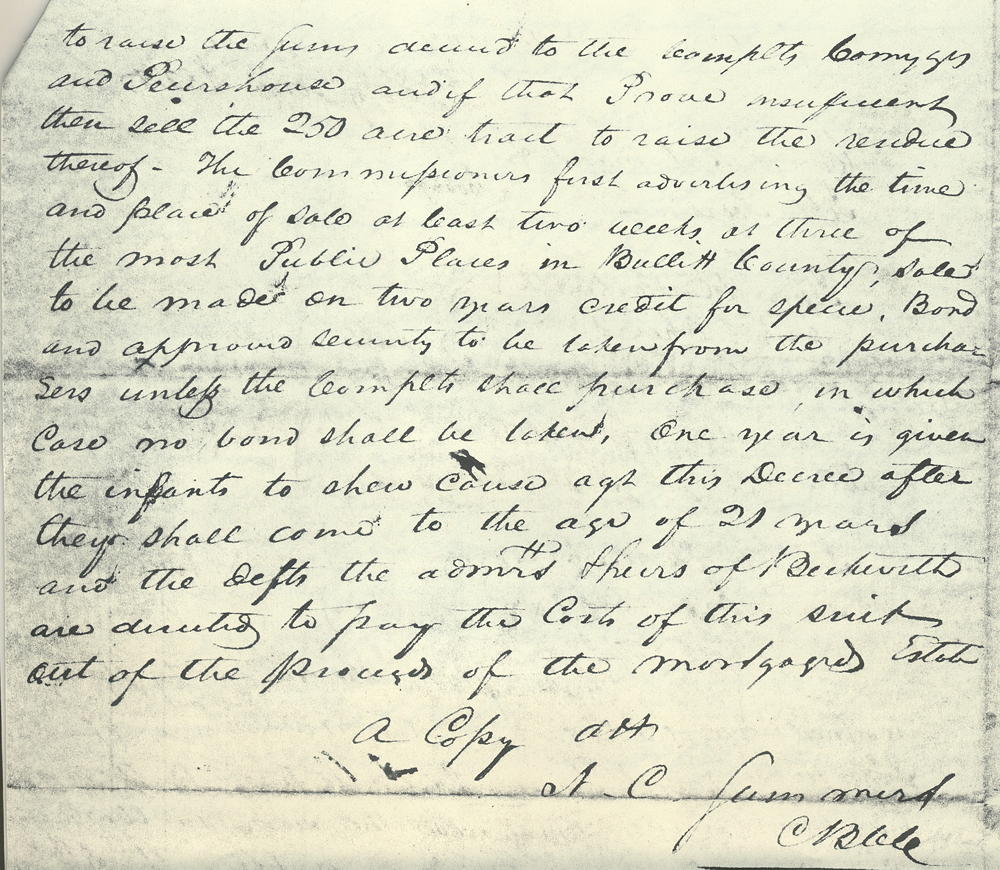 to raise the sums decreed to the Complts Comyges
and Pearshouse and if that Prove insufficient
then sell the 250 acre tract to raise the residue
thereof - The Commissioners first advertising the time
and place of sale at least two weeks at three of
the most Public Places in Bullitt County, sale
to be made on two years credit for specie, Bond
and approved security to be taken from the purcha-
sers unless the Complts shall purchase in which
Case no bond shall be taken, One year is given
the infants to shew cause agt this Decree after
they shall come to the age of 21 years
and the defts the admrs & heirs of Beckwith
are directed to pay the Costs of this suit
out of the proceeds of the mortgaged Estate
A Copy att
N. C. Summers
CBCC